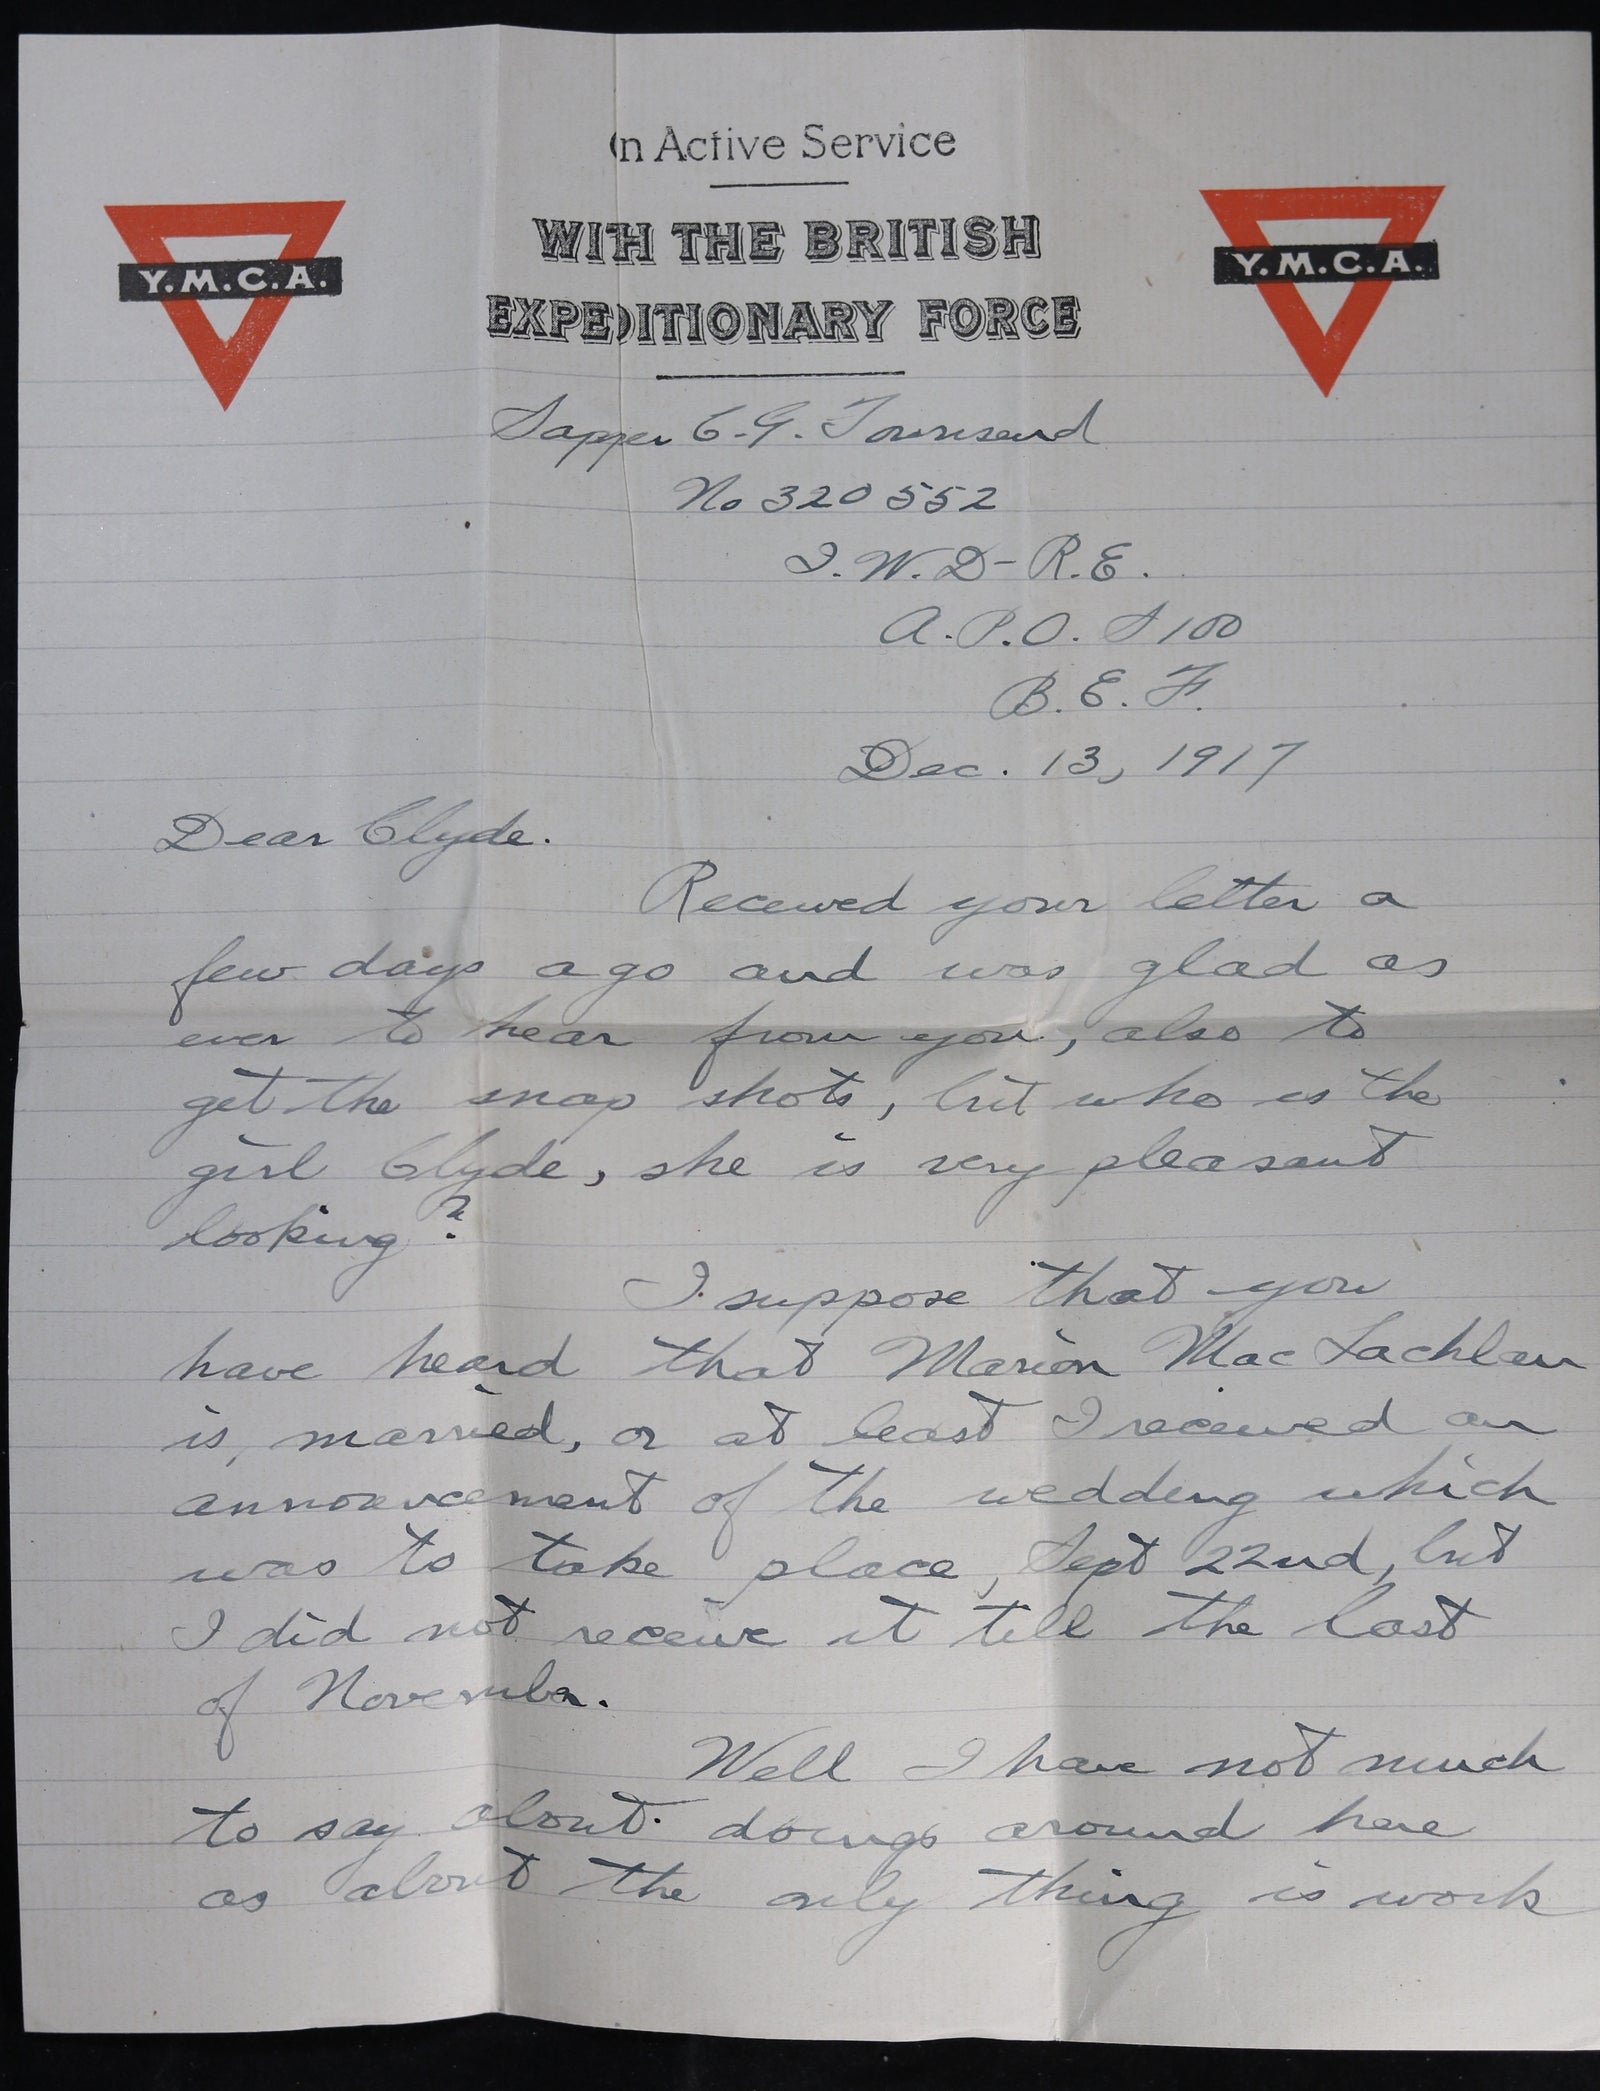 On Active Service
WITH THE BRITISH
EXPEDITIONARY FORCE
Y.M.C.A.
Y.M.C.A.
Sapper C.G. Townsend
No 320552
I.W.D-R.E.
A.P.O. S100
B.E.F.
Dec. 13, 1917
Dear Clyde.
Received your letter a
few days ago and was glad as
ever to hear from you, also to
get the snap shots, but who is the
girl Clyde, she is very pleasant
looking?
I suppose that you
have heard that Marion MacLachlan
is, married, or at least I received an
announcement of the wedding which
was to take place, Sept 22nd, but
I did not receive it till the last
of November.
Well I have not much
to say about doings around here
as about the only thing is work